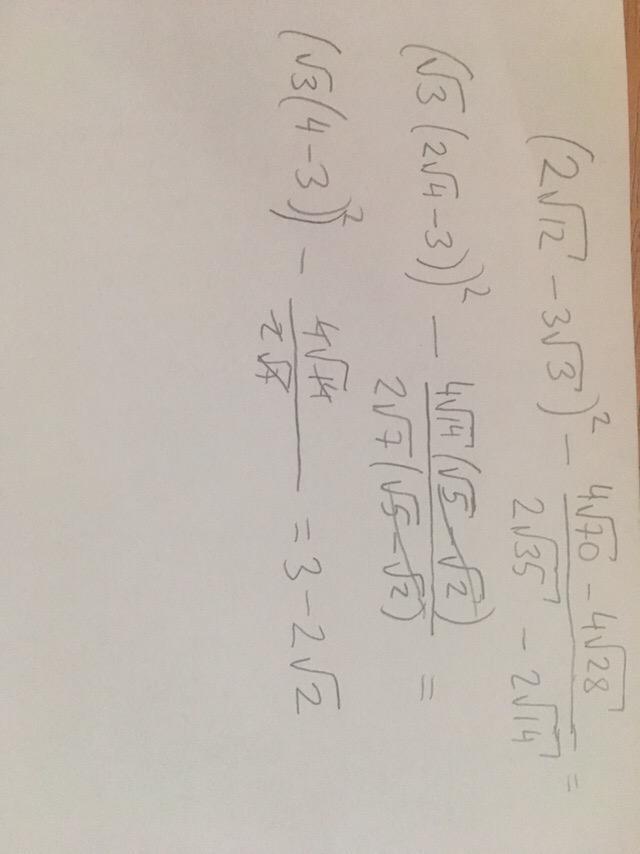 (2√12 - 3√3)² - (4√70 - 4√28)/(2√35 - 2√14) =
(√3(2√4 - 3))² - (4√14(√5 - √2))/(2√7(√5 - √2)) =
(√3(4 - 3))² - (4√14)/(2√7) = 3 - 2√2